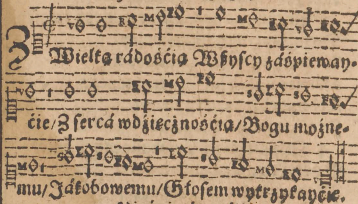 Wielką radośćią Wßyscy záśpieway-
ćie/ Z sercá wdźięcżnośćią/ Bogu możne-
mu/ Jákobowemu/ Głosem wykrzykayćie.